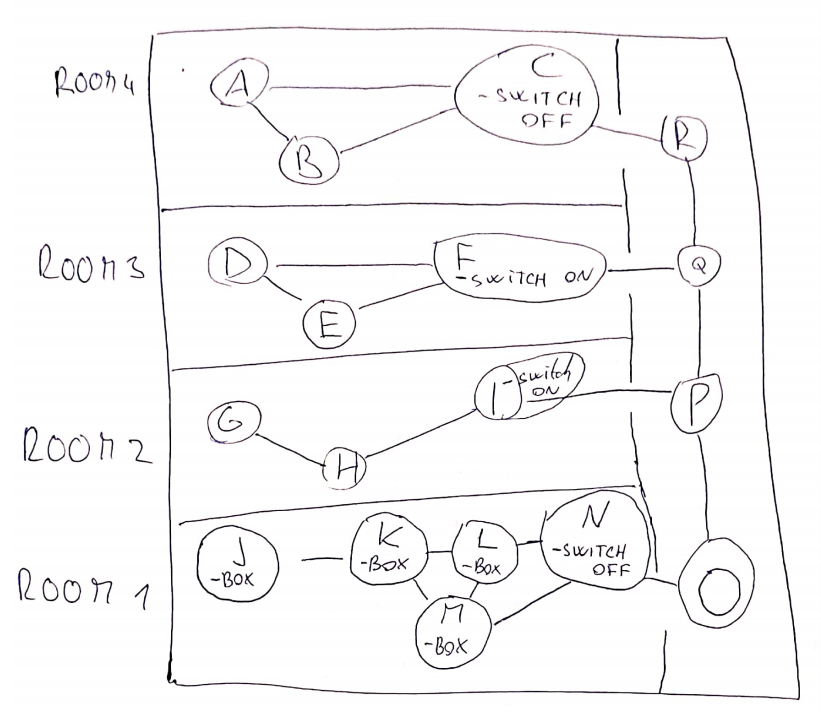 ROOM 4
A
C
-SWITCH
OFF
B
R
ROOM 3
D
F
-SWITCH ON
Q
E
ROOM 2
I
-switch
ON
P
G
H
ROOM 1
J
-BOX
K
-BOX
L
-BOX
N
-SWITCH
OFF
O
M
-BOX